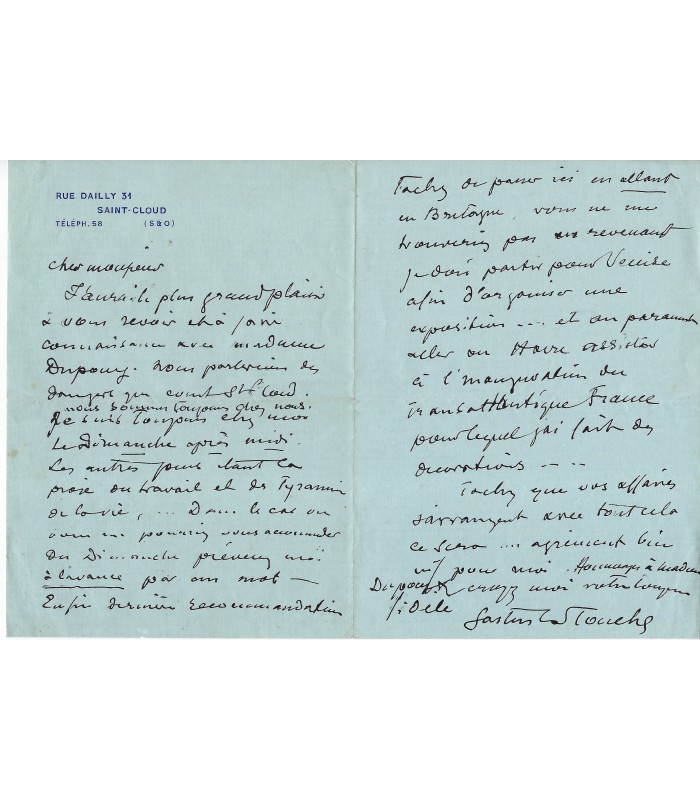 RUE DAILLY 31
SAINT-CLOUD
TÉLÉPH. 58 (S & O)
cher monsieur
J'aurai le plus grand plaisir
à vous revoir et à faire
connaissance avec madame
Dupouy. Nous parlerions des
dangers que court St Cloud.
nous sommes toujours chez nous.
Je suis toujours chez moi
Le Dimanche après midi.
Les autres jours étant la
proie du travail et des Tyrannies
de la vie, ... Dans le cas où
vous ne pourriez vous accommoder
du Dimanche prévenez moi
à l'avance par un mot —
Enfin dernière recommandation
Tachez de passer ici en allant
en Bretagne, vous ne me
trouveriez pas en revenant
je dois partir pour Venise
afin d'organiser une
exposition ... et auparavant
aller au Havre assister
à l'inauguration du
Transatlantique France
pour lequel j'ai fait des
décorations - - -
Tachez que vos affaires
s'arrangent avec tout cela
ce sera ... agrément bien
vif pour moi. Hommages à madame
Dupouy & croyez moi votre toujours
fidèle
Gaston La Touche